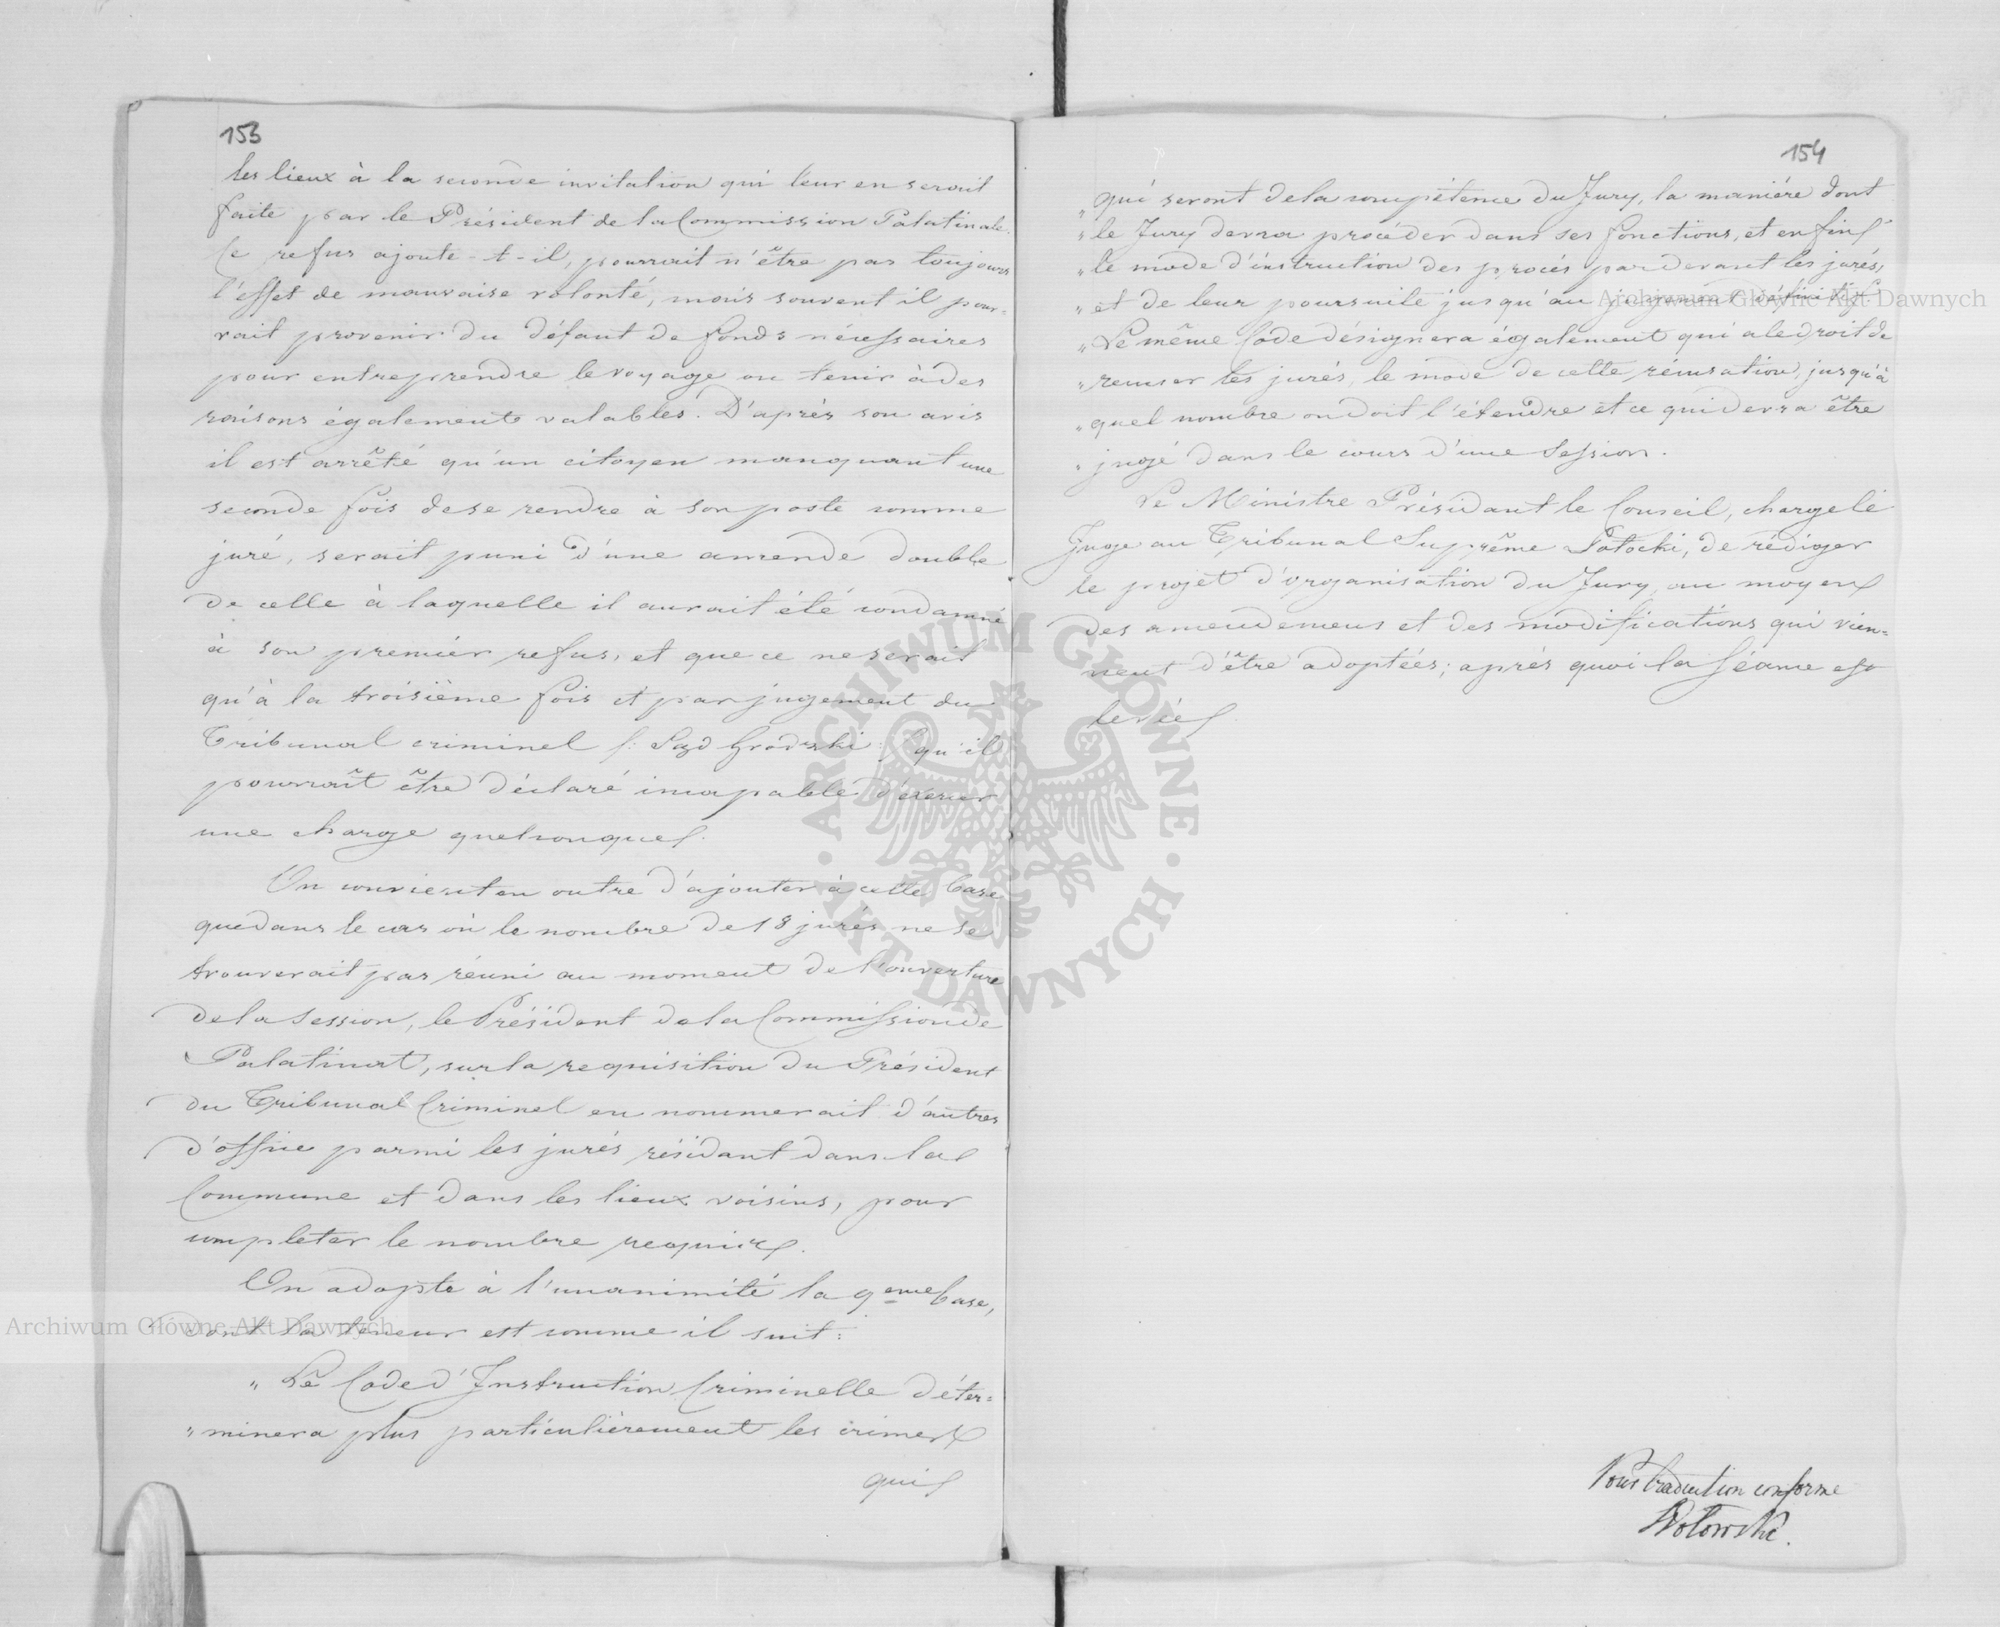 153
les lieux à la seconde invitation qui leur en serait
faite par le Président de la Commission Palatinale.
Ce refus ajoute-t-il, pourrait n'être pas toujours
l'effet de mauvaise volonté, mais souvent il pour=
rait provenir du défaut de fonds nécessaires
pour entreprendre le voyage ou tenir à des
raisons également valables. D'après son avis
il est arrêté qu'un citoyen manquant une
seconde fois de se rendre à son poste comme
juré, serait puni d'une amende double
de celle à laquelle il aurait été condamné
à son premier refus, et que ce ne serait
qu'à la troisième fois et par jugement du
Tribunal criminel /: Sąd Grodzki :/ qu'il
pourrait être déclaré incapable d'exercer
une charge quelconque.
On convient en outre d'ajouter à cette base
que dans le cas où le nombre de 18 jurés ne se
trouverait pas réuni au moment de l'ouverture
de la Session, le Président de la Commission de
Palatinat, sur la requisition du Président
du Tribunal Criminel en nommerait d'autres
d'office parmi les jurés résidant dans la
Commune et dans les lieux voisins, pour
completer le nombre requis.
On adopte à l'unanimité la 9eme base,
dont la teneur est comme il suit:
" Le Code d'Instruction Criminelle déter=
" minera plus particulièrement les crimes
qui
154
" qui seront de la compétence du Jury, la manière dont
" le Jury devra procéder dans ses fonctions, et enfin
" le mode d'instruction des procès pardevant les jurés,
" et de leur poursuite jusqu'au jugement définitif.
" Le même Code désignera également qui a le droit de
" recuser les jurés, le mode de cette récusation, jusqu'à
" quel nombre on doit l'étendre et ce qui devra être
" jugé dans le cours d'une Session.
Le Ministre Présidant le Conseil, charge le
Juge au Tribunal Suprême Potocki, de rédiger
le projet d'organisation du Jury, au moyen
des amendemens et des modifications qui vien=
nent d'être adoptées; après quoi la Séance est
levée.
Pour traduction conforme
Wołowski.
ARCHIWUM GŁÓWNE · AKT DAWNYCH ·
Archiwum Główne Akt Dawnych
Archiwum Główne Akt Dawnych